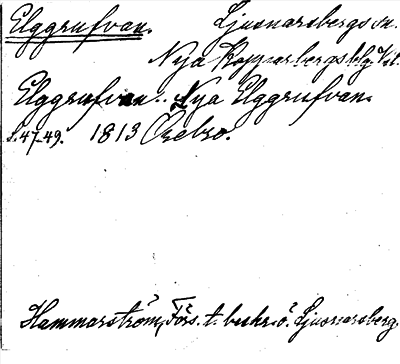 Elggrufvan. Ljusnarsbergs sn.
Nya Kopparbergs blg
Elggrufvan.. Nya Elggrufvan.
s. 47-49. 1813 Örebro.
Hammarström, Förs. t. beskr. ö. Ljusnarsberg.